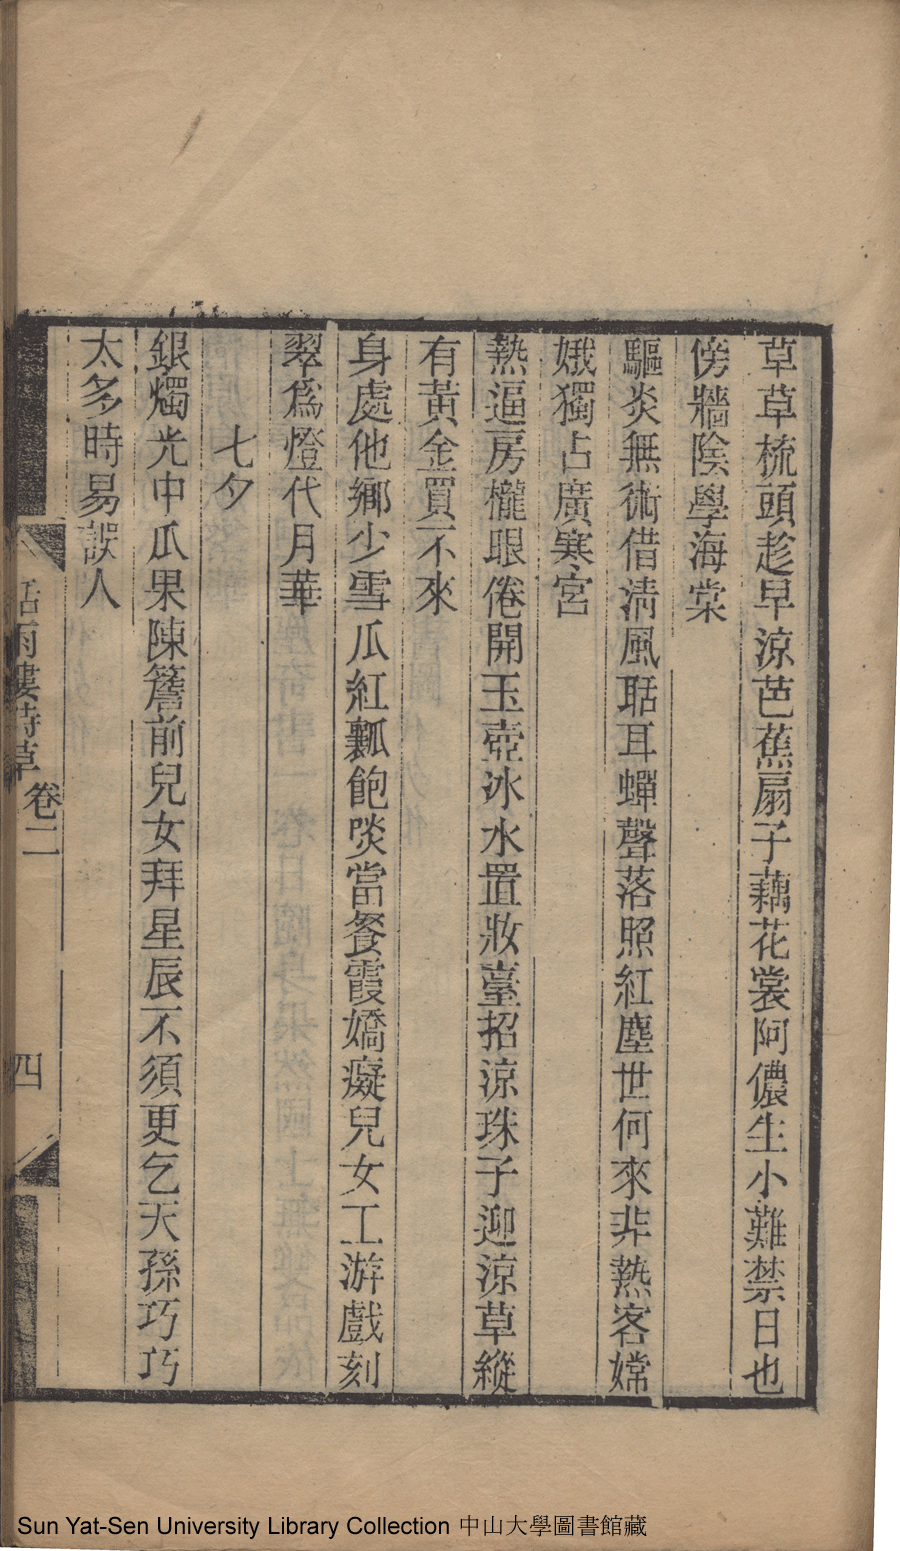 草草梳頭趁早涼芭蕉扇子藕花裳阿儂生小難禁日也
傍牆陰學海棠
驅炎無術借淸風聒耳蟬聲落照紅塵世何來非熱客嫦
娥獨占廣寒宮
熱逼房櫳眼倦開玉壺冰水置妝臺招涼珠子迎涼草縱
有黃金買不來
身處他鄉少雪瓜紅瓤飽啖當餐霞嬌癡兒女工游戲刻
翠爲燈代月華
七夕
銀燭光中瓜果陳簷前兒女拜星辰不須更乞天孫巧巧
太多時易誤人
話雨樓詩草
卷二
四
Sun Yat-Sen University Library Collection 中山大學圖書館藏